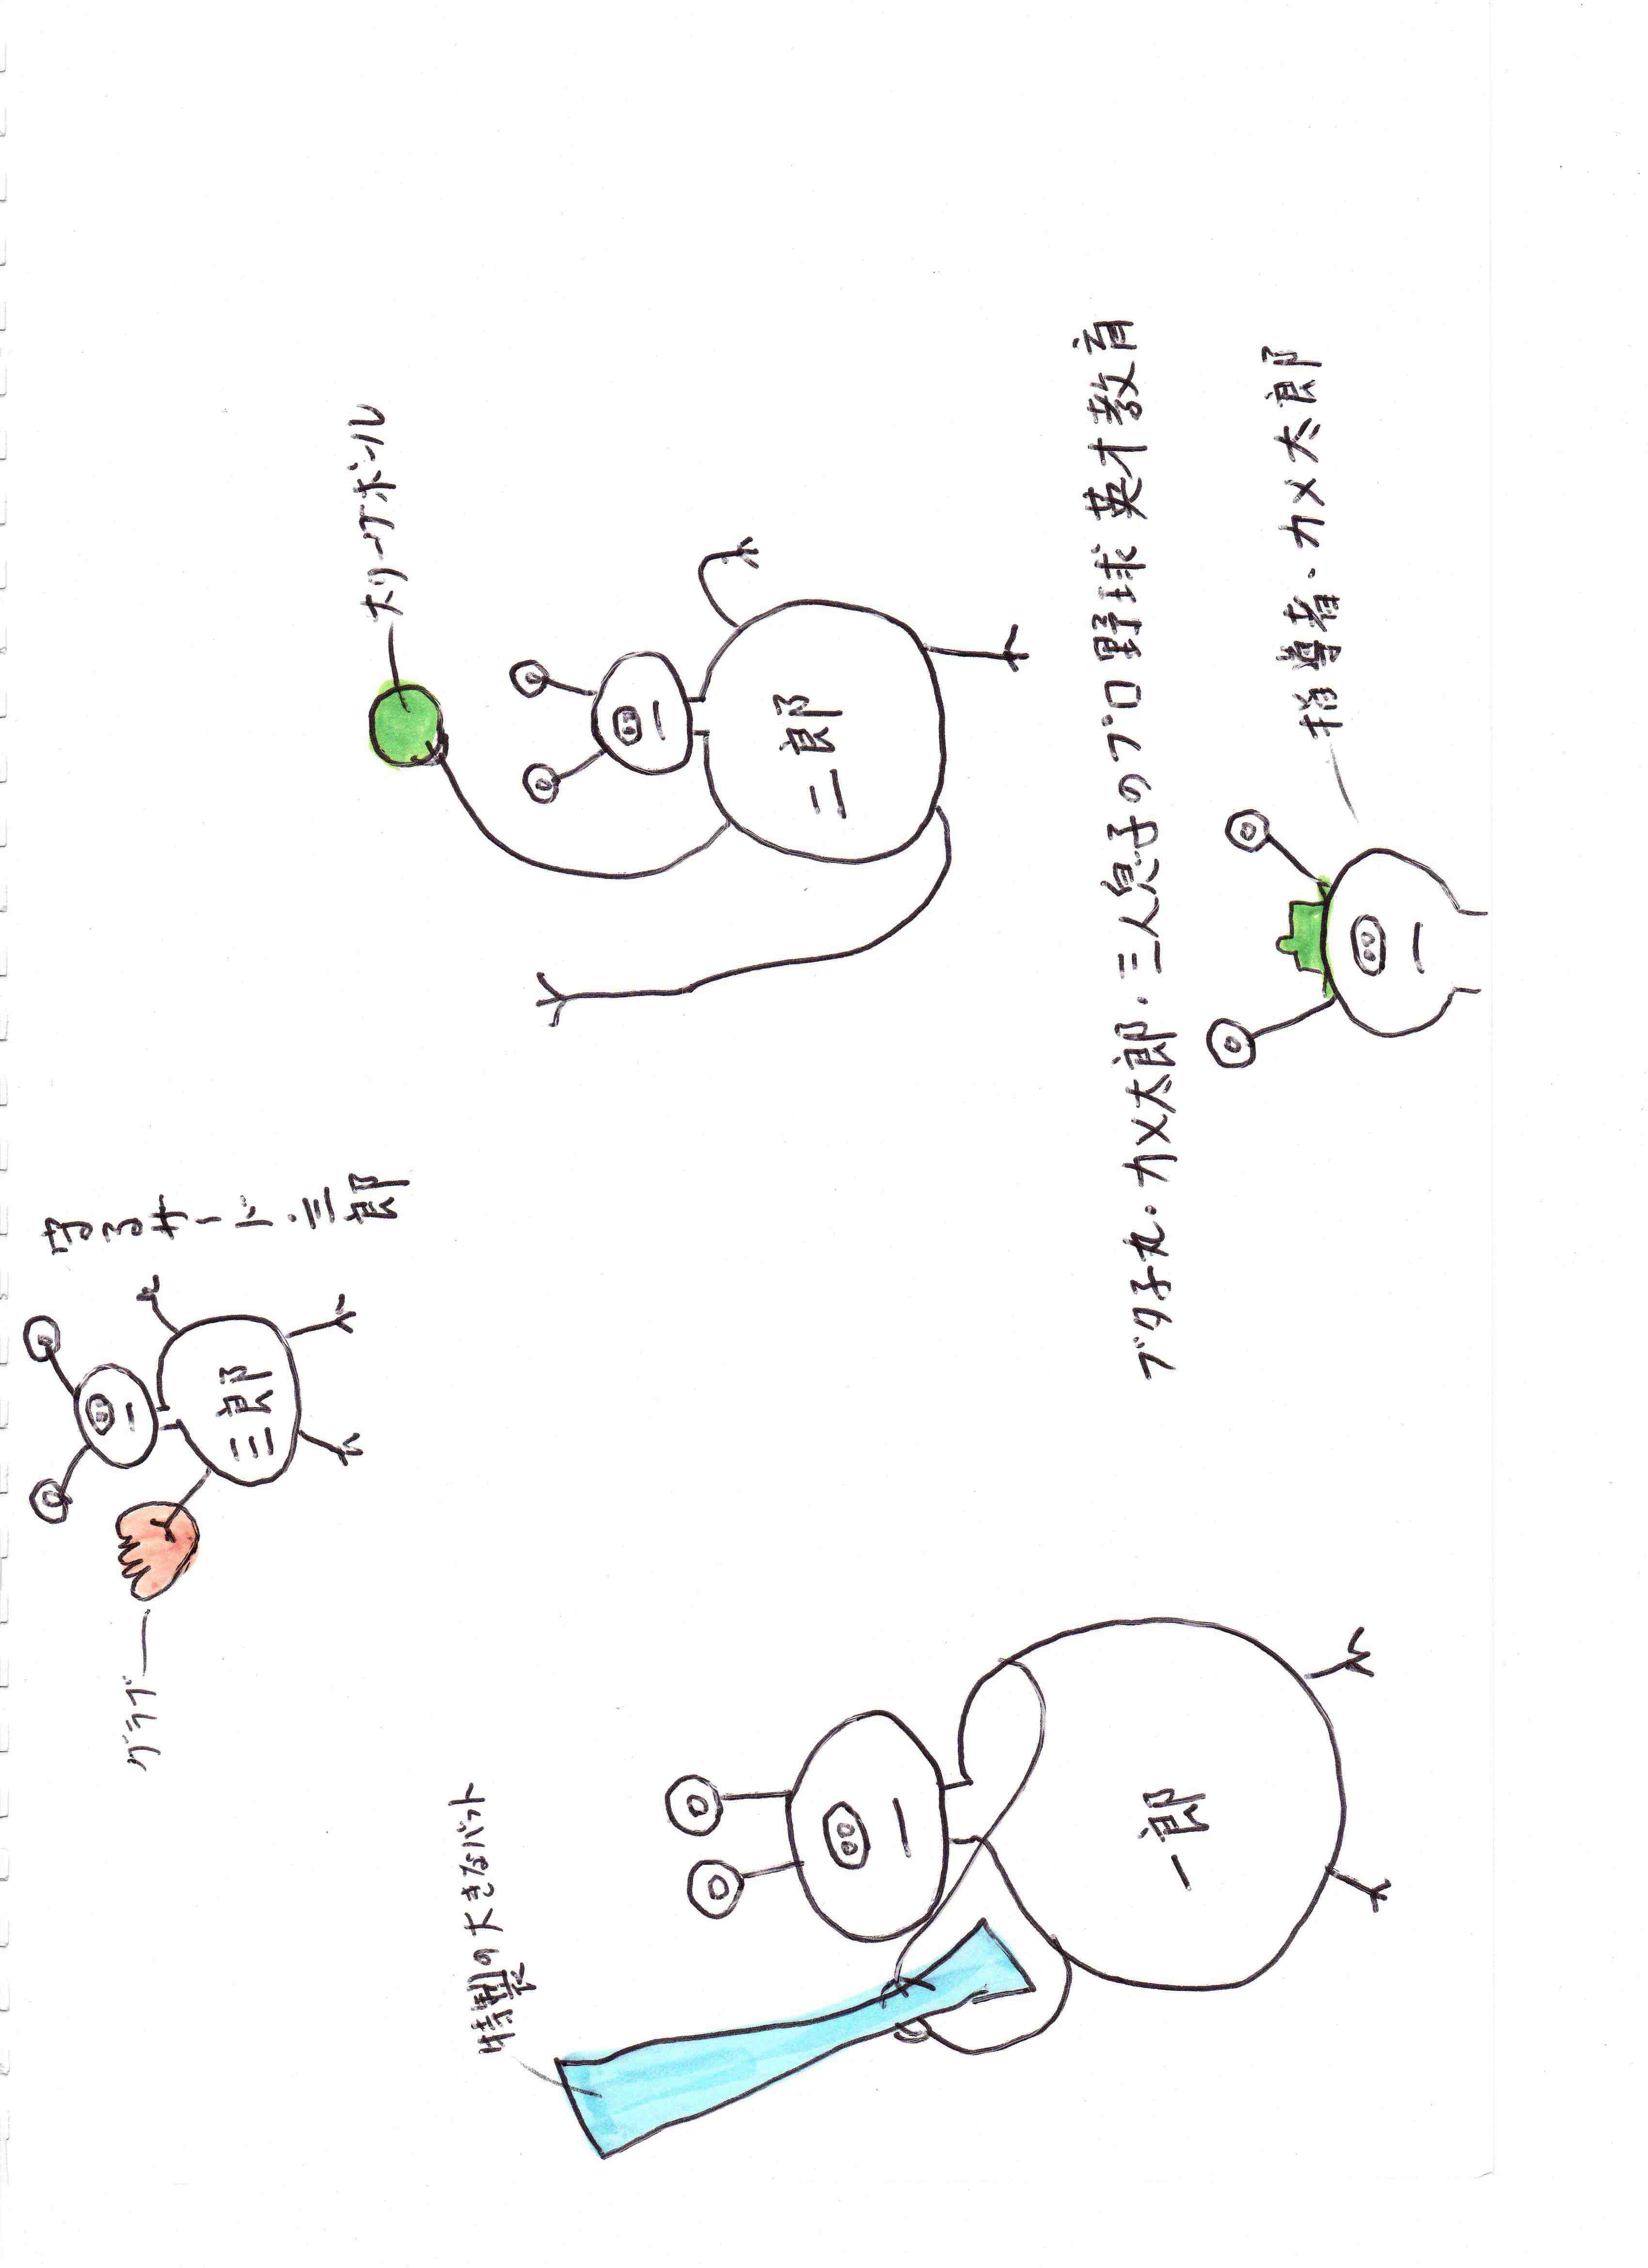 守るサード.三郎
グラブ
三郎
大リーグボール
特製の大きなバット
二郎
一郎
ブタ子丸。カメ太郎.三人息子のプロ野球英才教育
指導者.カメ太郎